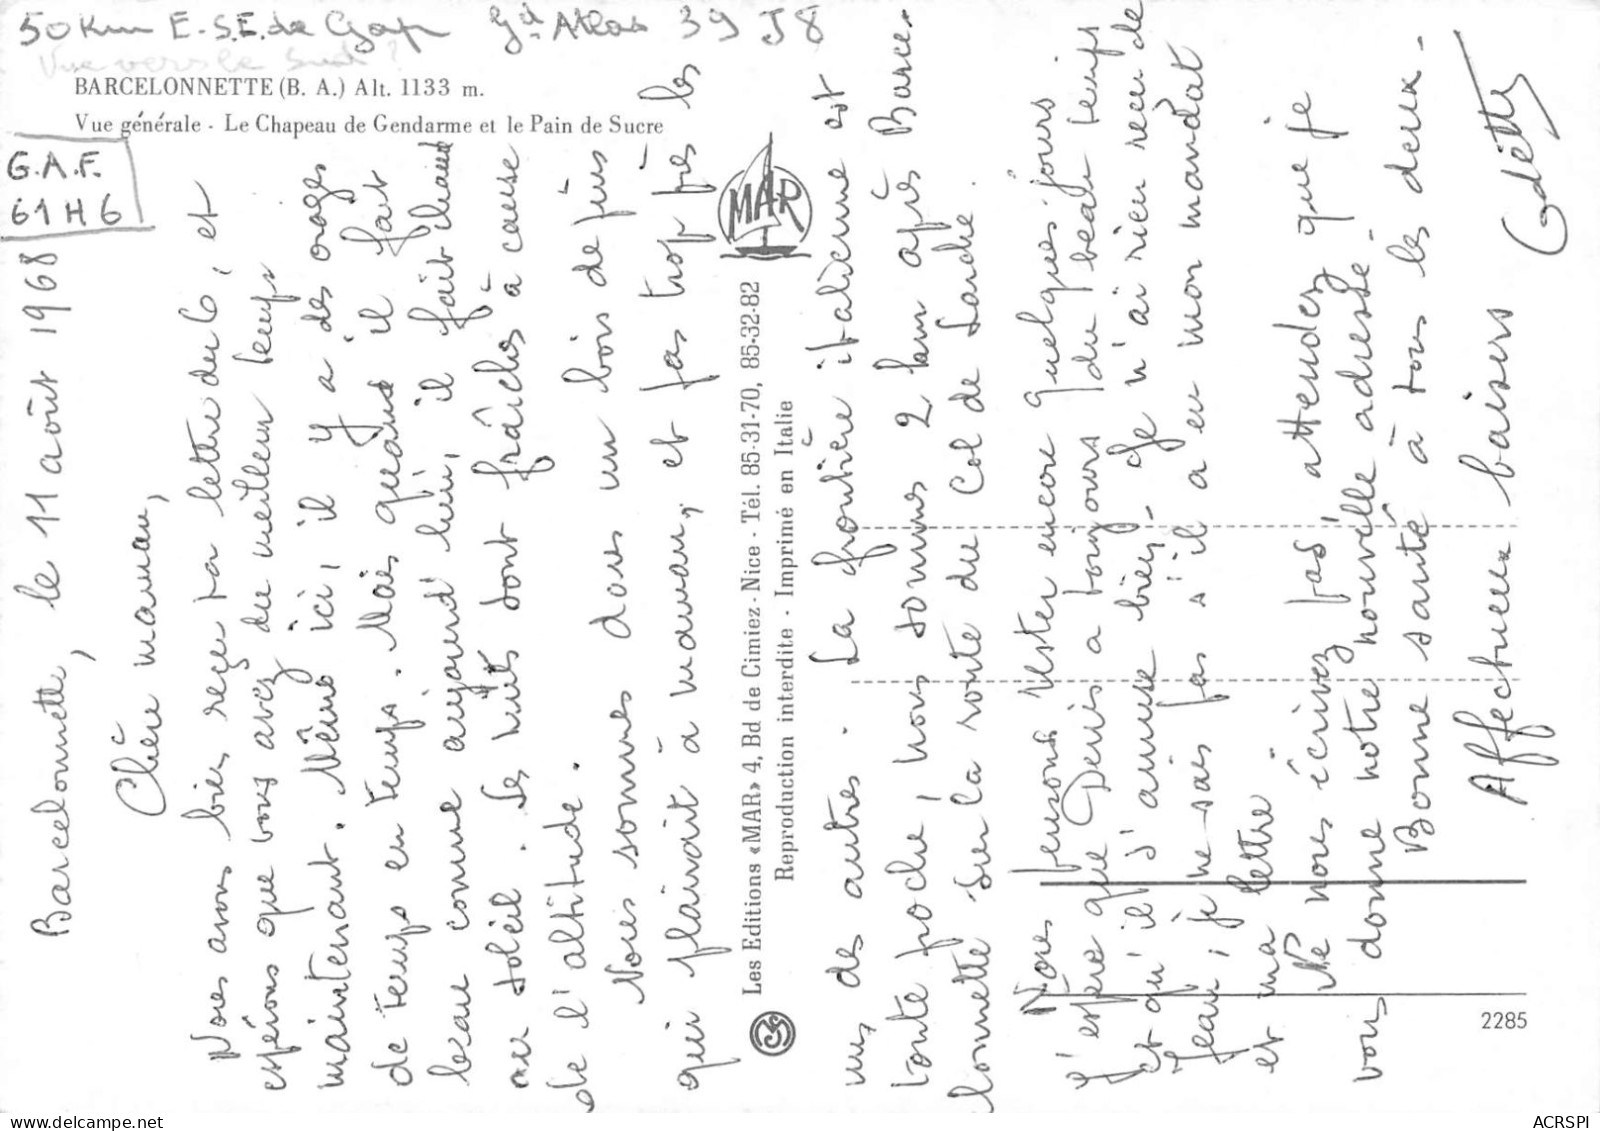 50 Km E-S.E. de Gap Gd Atlas 39 J 8
Vue vers le Sud ?
BARCELONNETTE (B. A.) Alt. 1133 m.
Vue générale - Le Chapeau de Gendarme et le Pain de Sucre
G.A.F.
61 H 6
Barcelonnette, le 11 août 1968
Chère maman,
Nous avons bien reçu ta lettre du 6, et
espérons que vous avez du meilleur temps
maintenant. Même ici, il y a des orages
de temps en temps. Mais quand il fait
beau comme aujourd'hui, il fait chaud
au soleil. Les nuits sont fraîches à cause
de l'altitude.
Nous sommes dans un bois de pins
qui plairait à maman, et pas trop près les
uns des autres. La frontière italienne est
toute proche, nous sommes 2 km après Barce-
lonnette sur la route du Col de Larche.
Nous pensons rester encore quelques jours
J'espère que Denis a toujours du beau temps
et qu'il s'amuse bien. Je n'ai rien reçu de
Jean, je ne sais pas s'il a eu mon mandat
et ma lettre.
Ne nous écrivez pas, attendez que je
vous donne notre nouvelle adresse.
Bonne santé à tous les deux.
Affectueux baisers
Odette
MAR
Les Editions «MAR» 4, Bd de Cimiez - Nice - Tél. 85-31-70, 85-32-82
Reproduction interdite - Imprimé en Italie
2285
ACRSPI